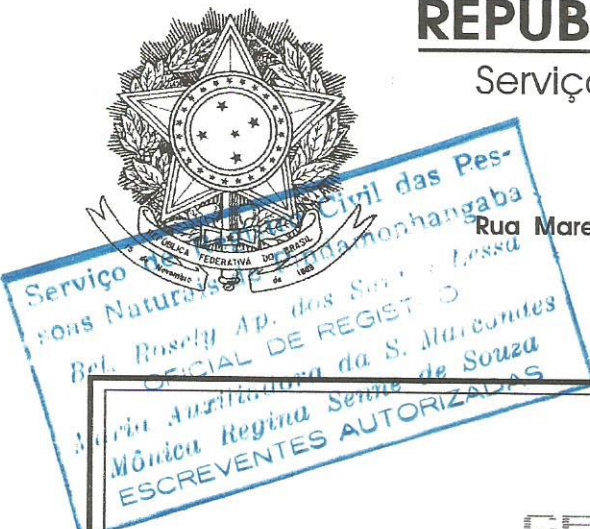 REPÚB
Serviço
Rua Mare
REPÚBLICA FEDERATIVA DO BRASIL
15 de Novembro de 1889
Serviço de Registro Civil das Pes-
soas Naturais de Pindamonhangaba
Bel. Rosely Ap. dos Santos Lessa
OFICIAL DE REGISTRO
Maria Auxiliadora da S. Marcondes
Mônica Regina Senne de Souza
ESCREVENTES AUTORIZADAS